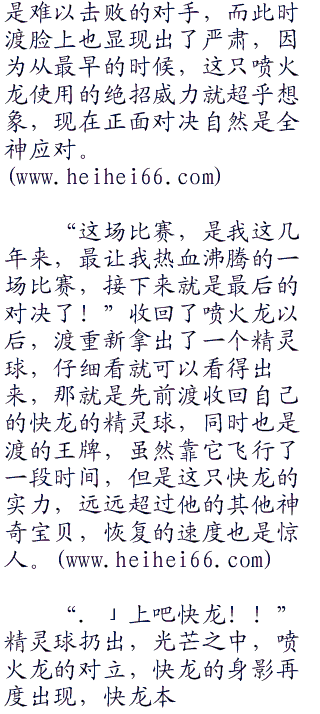 是难以击败的对手，而此时
渡脸上也显现出了严肃，因
为从最早的时候，这只喷火
龙使用的绝招威力就超乎想
象，现在正面对决自然是全
神应对。
(www.heihei66.com)
“这场比赛，是我这几
年来，最让我热血沸腾的一
场比赛，接下来就是最后的
对决了！”收回了喷火龙以
后，渡重新拿出了一个精灵
球，仔细看就可以看得出
来，那就是先前渡收回自己
的快龙的精灵球，同时也是
渡的王牌，虽然靠它飞行了
一段时间，但是这只快龙的
实力，远远超过他的其他神
奇宝贝，恢复的速度也是惊
人。(www.heihei66.com)
“．」上吧快龙！！”
精灵球扔出，光芒之中，喷
火龙的对立，快龙的身影再
度出现，快龙本